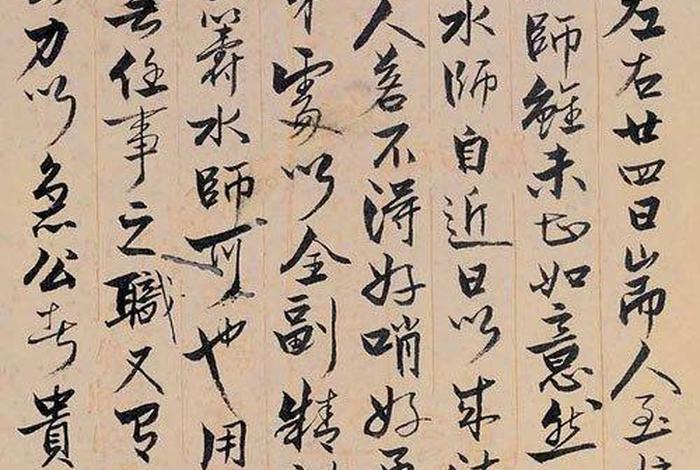 左右廿四日耑人至
師雖未必如意然
水師自近日以成
人若不得好哨好
處以全副精
籌水師可也用
任事之職又有
力以急公者貴